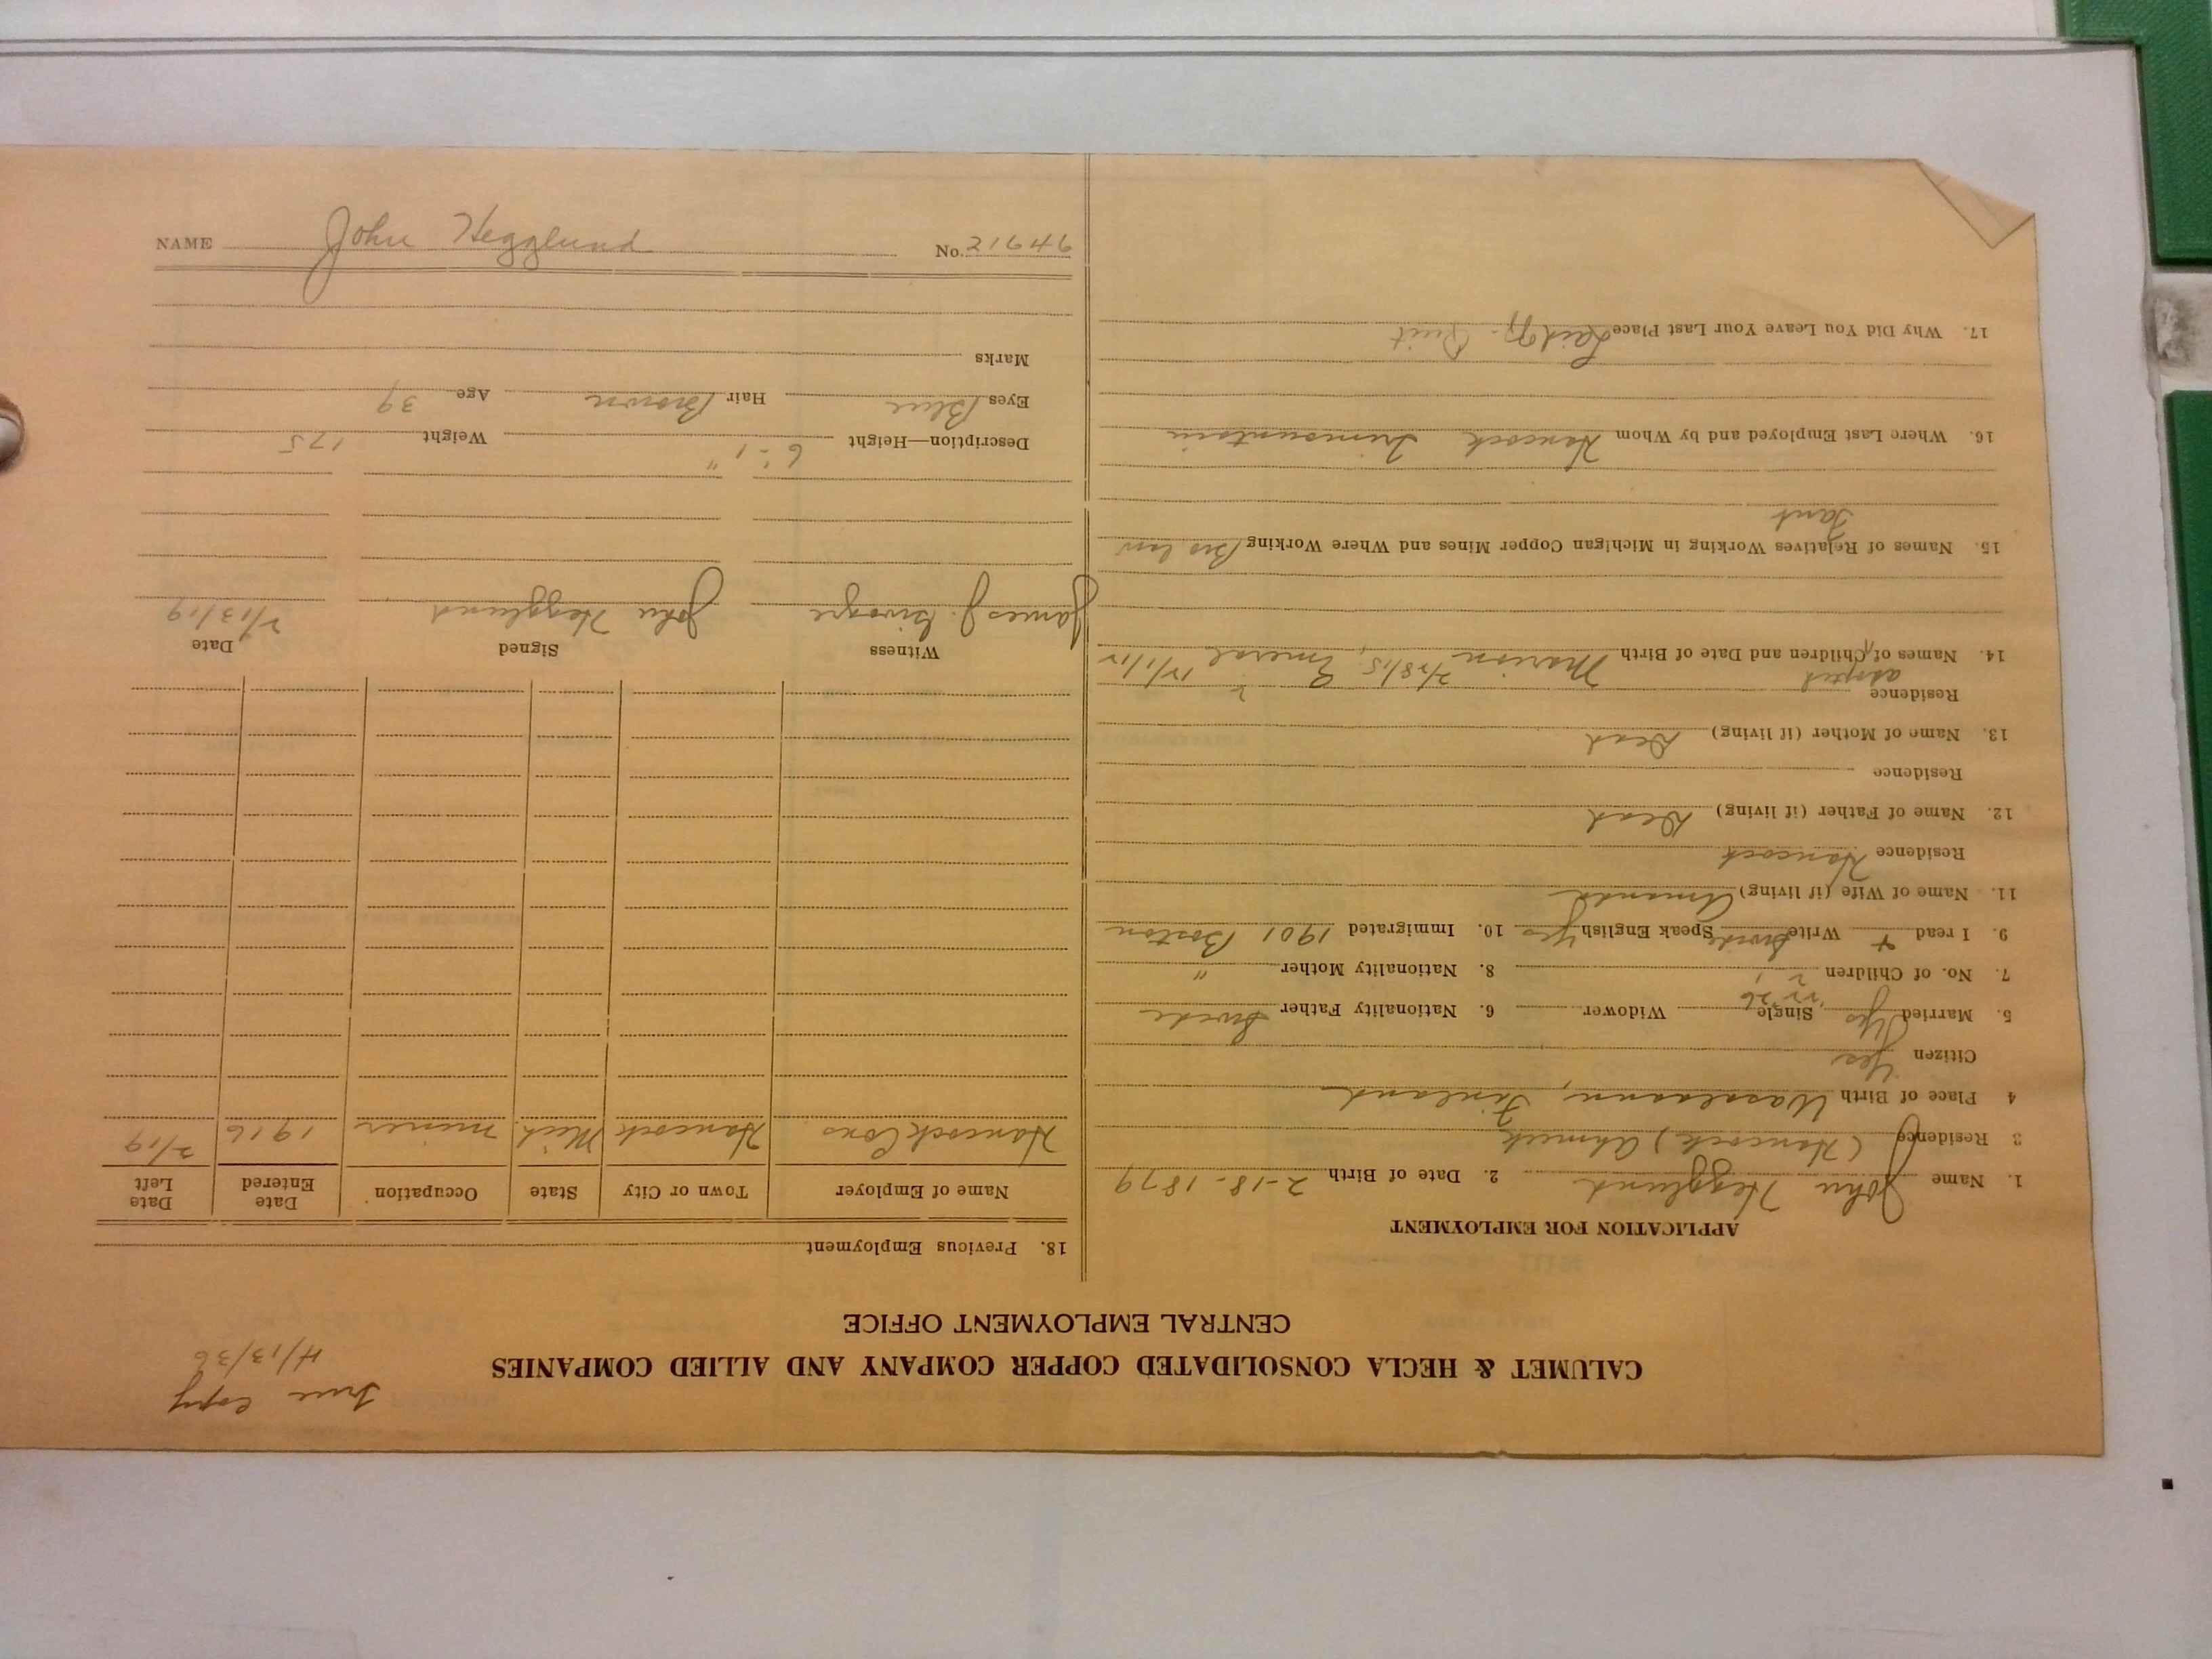 True copy
4/13/36
CALUMET & HECLA CONSOLIDATED COPPER COMPANY AND ALLIED COMPANIES
CENTRAL EMPLOYMENT OFFICE
APPLICATION FOR EMPLOYMENT
1. Name John Hegglund 2. Date of Birth 2-18-1879
3 Residence (Hancock) Ahmeek
4 Place of Birth Finland
Citizen Yes
5. Married Yes Single Widower 6. Nationality Father Swede
7. No. of Children 2 8. Nationality Mother "
9. I read + Write Swede Speak English Yes 10. Immigrated 1901 Boston
11. Name of Wife (if living) Amanda
Residence Hancock
12. Name of Father (if living) Dead
Residence
13. Name of Mother (if living) Dead
Residence
adopted
14. Names of Children and Date of Birth Marion 2/28/15,
15. Names of Relatives Working in Michigan Copper Mines and Where Working
16. Where Last Employed and by Whom Hancock Trimountain
17. Why Did You Leave Your Last Place Laid off - Quit
18. Previous Employment
Name of Employer Town or City State Occupation Date Entered Date Left
Hancock Cons Hancock Mich. miner 1916 2/19
Witness Signed Date
James J. John Hegglund 2/13/19
Description—Height 6'-1" Weight 175
Eyes Blue Hair Brown Age 39
Marks
NAME John Hegglund No. 21644